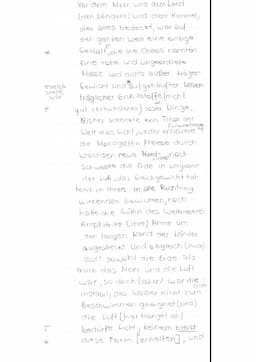 Vor dem Meer und dem Land
(den Ländern) und dem Himmel,
der alles bedeckt, war auf
der ganzen Welt eine einzige
Gestalt, die sie Chaos nannten
Eine rohe und ungeordnete
Masse und nichts außer träger
Gewicht und
träglicher Grundstoffe (nicht
gut verbundener) loser Dinge.
Bisher schenkte kein Titan der
Welt das Licht, weder erneuerte
die Mondgöttin Phoebe durch
Wachsen neue noch
schwebte die Erde in
der Luft, das Gleichgewicht hal-
tend in ihrem in alle Richtung
wirkenden Gewichten, noch
hatte die Göttin des Weltmeeres
Amphitrite (ihre) Arme um
den langen Rand der Länder
ausgestreckt. Und obgleich (zwar)
dort sowohl die Erde als
auch das Meer und die Luft
war, so doch (aber) war die
instabil, das Wasser nicht zum
Beschwimmen geeignet (und)
die Luft (hat Mangel an)
bedurfte Licht, keinem blieb
diese Form [erhalten], und